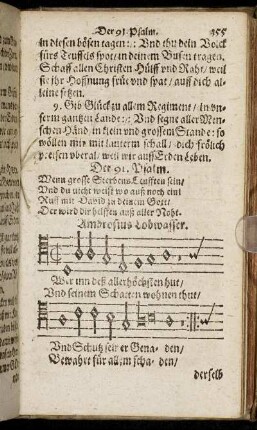 Der 91. Psalm. 355
in diesen bösen tagen: :: Vnd thu dein Volck
fürs Teuffels spot/ in deinem Busen tragen.
Schaff allen Christen Hülff vnd Raht/ weil
sie ihr Hoffnung früe vnd spat/ auff dich al-
leine setzen.
9. Gib Glück zu allem Regiment/ in vn-
serm gantzen Lande: :: Vnd segne aller Men-
schen Händ/ in klein vnd grossem Stande: so
wöllen wir mit lauterm schall/ dich frölich
preisen vberal/ weil wir auff Erden Leben.
Der 91. Psalm.
Wenn grosse Sterbens Leufften sein/
Vnd du nicht weist wo auß noch ein/
Ruff mit David zu deinem Gott/
Der wird dir helffen auß aller Noht.
Ambrosius Lobwasser.
Wer inn deß allerhöchsten hut/
Vnd seinem Schatten wohnen thut/
Vnd Schutz seiner Gena- den/
Bewahrt für allem scha- den/
derselb